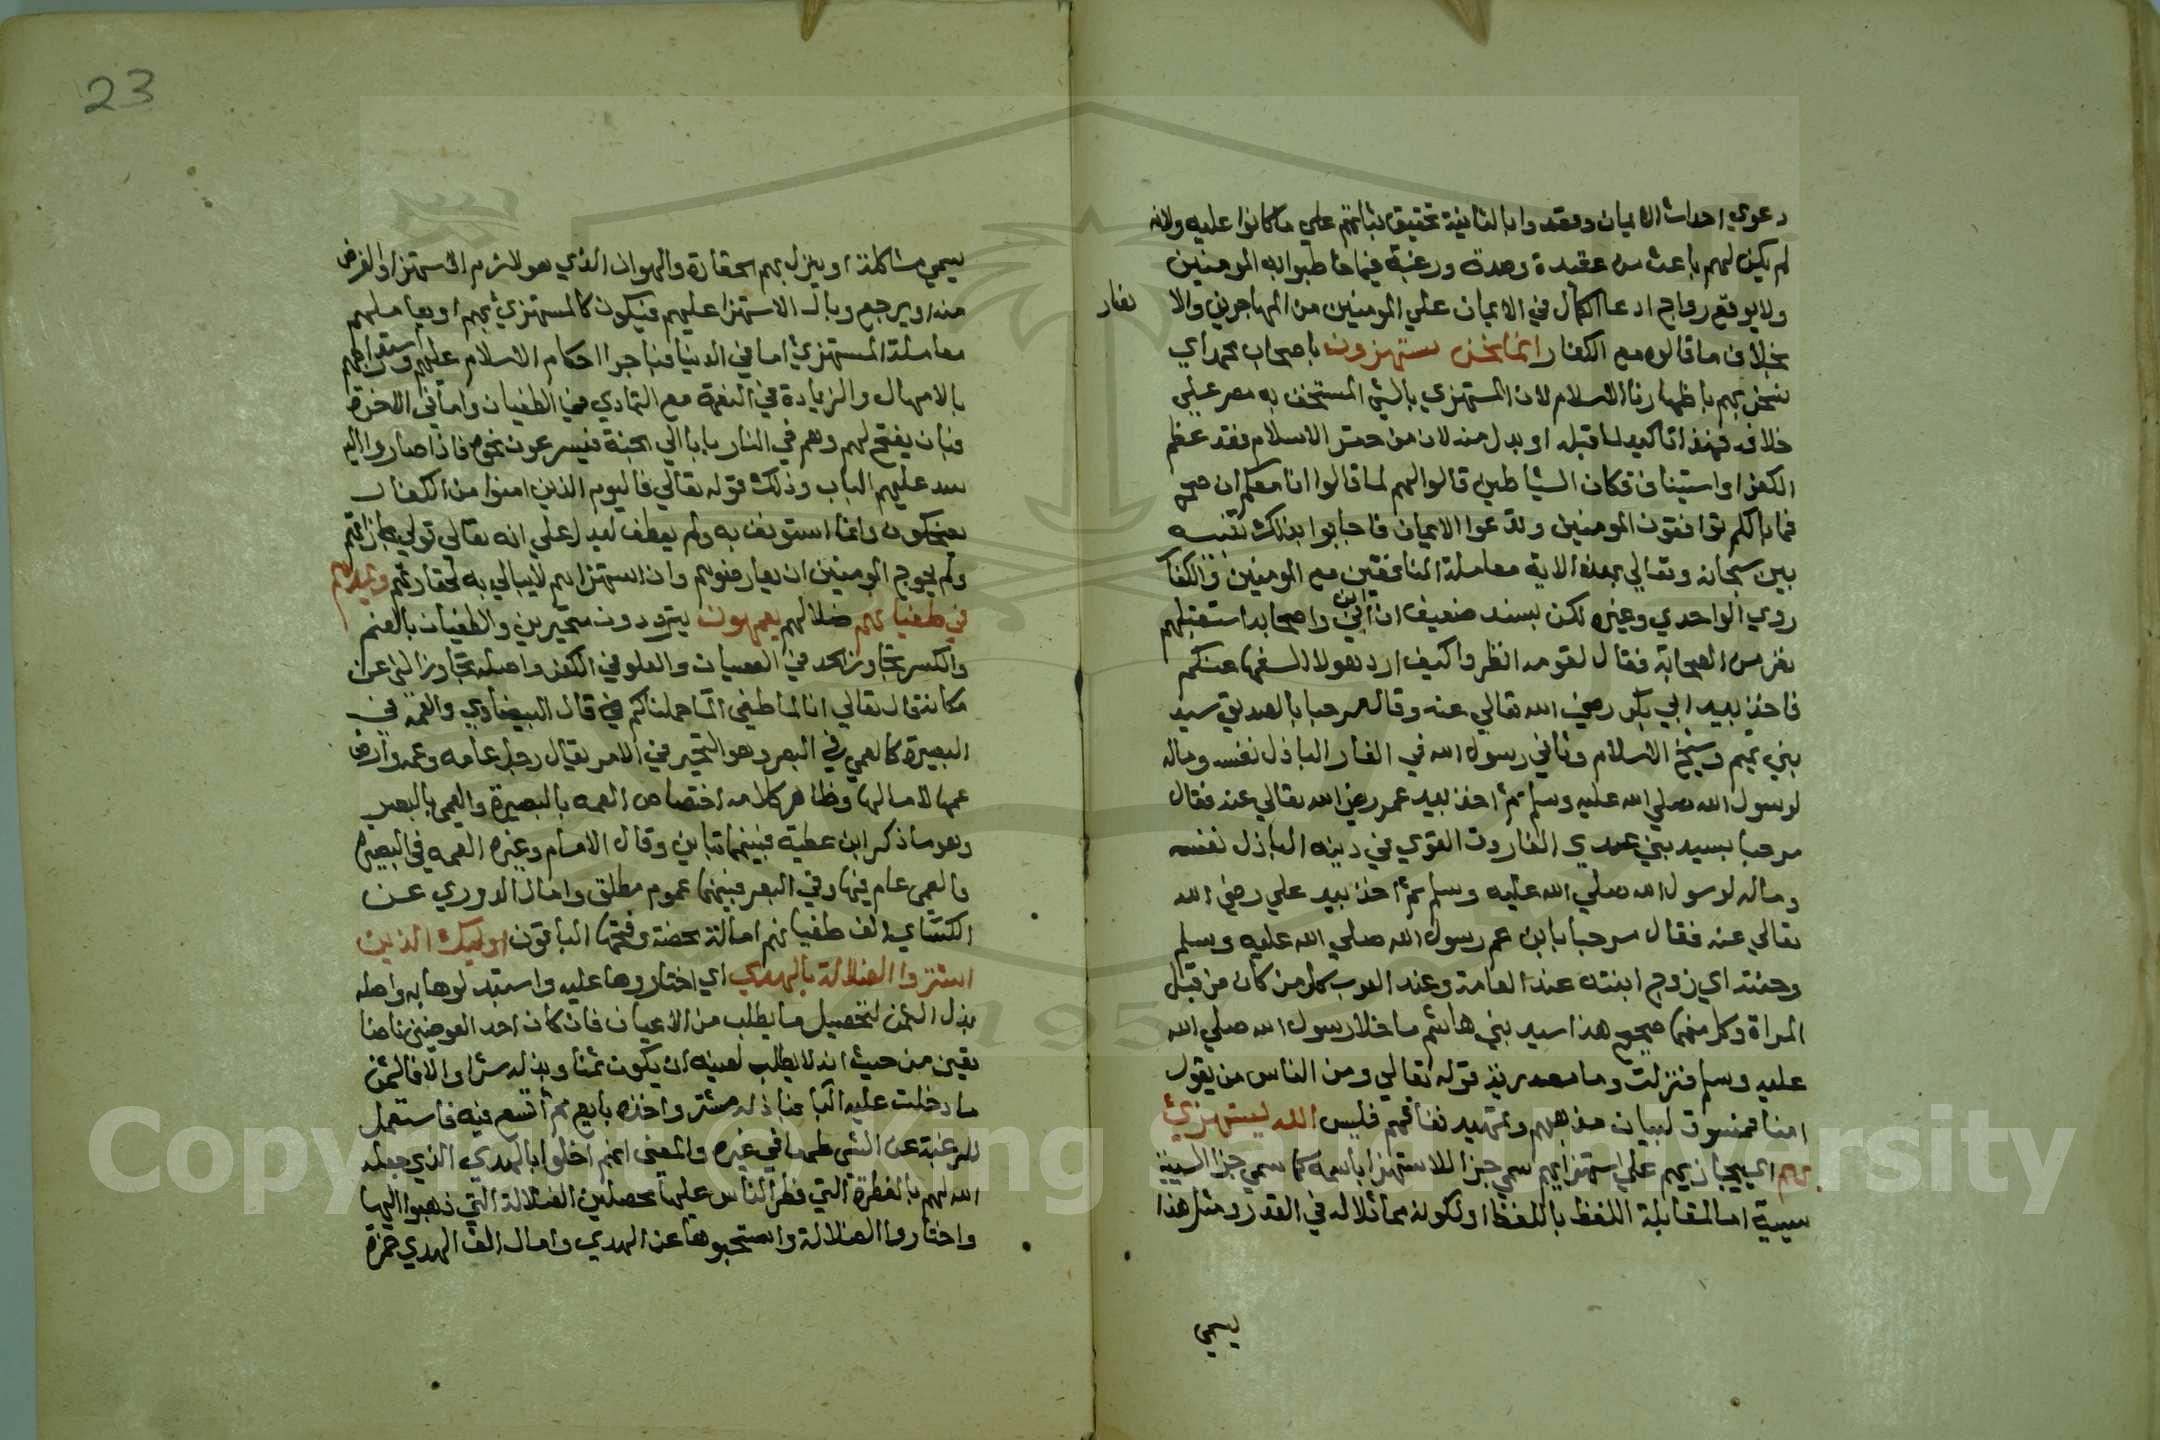 دعوي احداث الايمان وقصدوا بالثانية تحقيق ثباتهم علي ما كانوا عليه ولانه
لم يكن لهم باعث من عقيدة وصدق ورغبة فيما خاطبوا به المومنين
ولا يوقع رواج ادعا الكمال في الايمان علي المومنين من المهاجرين والا نصار
بخلاف ما قالوه مع الكفار انما نحن مستهزون باصحاب محمد اي
نسخر بهم باظهارنا الاسلام لان المستهزي بالشي المستخف به مصر علي
خلافه فهذا تاكيد لما قبله او بدل منه لان من حقر الاسلام فقد عظم
الكفر او استيناف فكان الشياطين قالوا لهم لما قالوا انا معكم ان صح
فما بالكم توافقون المومنين وتدعوا الايمان فاجابوا بذلك تنبيه
بين سبحانه وتعالي بهذه الاية معاملة المنافقين مع المومنين والكفار
روي الواحدي وغيره لكن بسند ضعيف ان ابن ابي واصحابه استقبلهم
نفر من الصحابة فقال لقومه انظروا كيف ارد هولا السفها عنكم
فاخذ بيد ابي بكر رضي الله تعالي عنه وقال مرحبا بالصديق سيد
بني تميم وشيخ الاسلام وثاني رسول الله في الغار الباذل نفسه وماله
لرسول الله صلي الله عليه وسلم ثم اخذ بيد عمر رضي الله تعالي عنه فقال
مرحبا بسيد بني عدي الفاروق القوي في دينه الباذل نفسه
وماله لرسول الله صلي الله عليه وسلم ثم اخذ بيد علي رضي الله
تعالي عنه فقال مرحبا بابن عم رسول الله صلي الله عليه وسلم
وختنه اي زوج ابنته عند العامة وعند العرب كل من كان من قبل
المراة وكل منهما صحيح هنا سيد بني هاشم ما خلا رسول الله صلي الله
عليه وسلم فنزلت وما صدر به قوله تعالي ومن الناس من يقول
امنا فمسوق لبيان مذهبهم وتمهيد نفاقهم فليس الله يستهزئ
بهم اي يجازيهم علي استهزايهم سمي جزا الاستهزا باسمه كما سمي جزا السيية
سيية اما لمقابلة اللفظ باللفظ او لكونه مماثلا له في القدر ومثل هذا
يسمي
23
يسمي مشاكلة او ينزل بهم الحقارة والهوان الذي هو لازم الاستهزا والغرض
منه او يرجع وبال الاستهزا عليهم فيكون كالمستهزئ بهم او يعاملهم
معاملة المستهزئ اما في الدنيا فباجرا احكام الاسلام عليهم واستدراجهم
بالامهال والزيادة في النعمة مع التمادي في الطغيان واما في الاخرة
فبان يفتح لهم وهم في النار بابا الي الجنة فيسرعون نحوه فاذا صاروا اليه
سد عليهم الباب وذلك قوله تعالي فاليوم الذين امنوا من الكفار
يضحكون وانما استونف به ولم يعطف ليدل علي انه تعالي تولي مجازاتهم
ولم يحوج المومنين ان يعارضوهم وان استهزاهم لا يبالي به لحقارتهم ويمدهم
في طغيانهم ضلالهم يعمهون يترددون متحيرين والطغيان بالضم
والكسر تجاوز الحد في العصيان والغلو في الكفر واصله تجاوز الشي عن
مكانه قال تعالي انا لما طغي الما حملناكم قال البيضاوي والعمه في
البصيرة كالعمي في البصر وهو التحير في الامر يقال رجل عامه وعمه وارض
عمها لا منار لها وظاهر كلامه اختصاص العمه بالبصيرة والعمي بالبصر
وهو ما ذكر ابن عطية فبينهما تباين وقال الامام وغيره العمه في البصيرة
والعمي عام فيها وفي البصر فبينهما عموم مطلق وامال الدوري عن
الكساي الف طغيانهم امالة محضة وفتحها الباقون اوليك الذين
اشتروا الضلالة بالهدي اي اختاروها عليه واستبدلوها به واصله
بذل الثمن لتحصيل ما يطلب من الاعيان فان كان احد العوضين ناضا
تعين من حيث انه لا يطلب لعينه ان يكون ثمنا وبذله شرا والا فالثمن
ما دخلت عليه البا فباذله مشتر واخذه بايع ثم اتسع فيه فاستعمل
للرغبة عن الشي طمعا في غيره والمعني انهم اخلوا بالهدي الذي جعله
الله لهم بالفطرة التي فطر الناس عليها محصلين الضلالة التي ذهبوا اليها
واختاروا الضلالة واستحبوها عن الهدي وامال الف الهدي حمزة
Copyright © King Saud University
1957